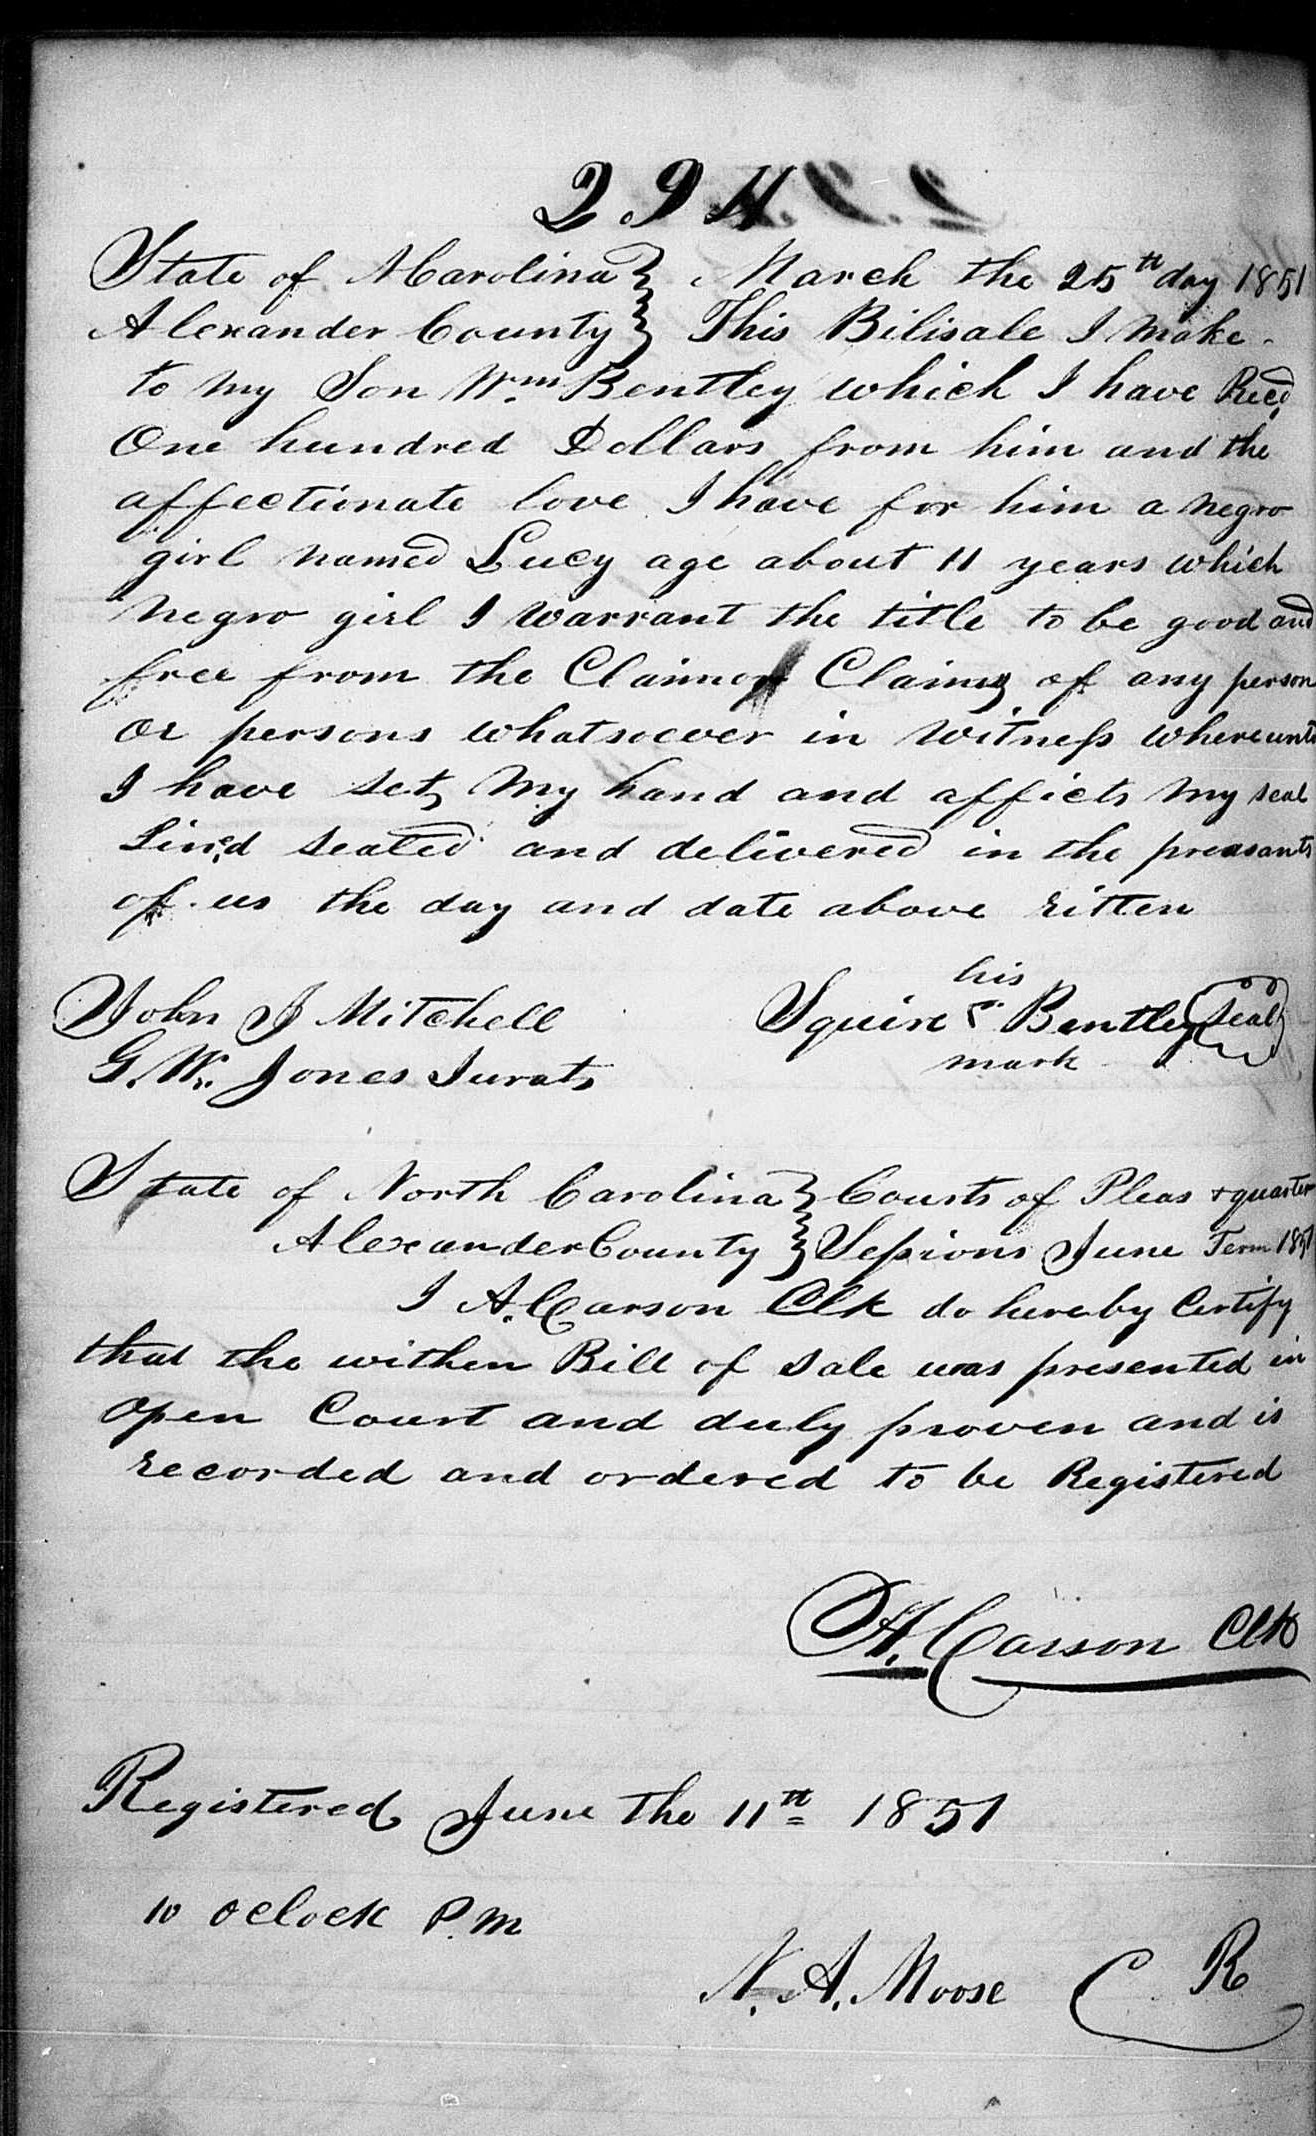 294
State of N Carolina } March the 25th day 1851
Alexander County } This Bilisale I make
to my Son Wm. Bentley which I have Recd.
One hundred Dollars from him and the
affectionate love I have for him a negro
girl named Lucy age about 11 years which
negro girl I warrant the title to be good and
free from the Claim or Claims of any person
or persons whatsoever in witness whereunto
I have set my hand and afficts my seal
Sin,d sealed and delivered in the preasants
of us the day and date above ritten
his
John J Mitchell Squire Bentley Seal
G. W. Jones Jurats mark
State of North Carolina } Courts of Pleas & quarter
Alexander County } Sessions June Term 1851
I A. Carson Clk do hereby Certify
that the withen Bill of sale was presented in
open Court and duly proven and is
recorded and ordered to be Registered
A. Carson Clk
Registered June the 11th 1851
10 oclock P.M
N. A. Moose C R